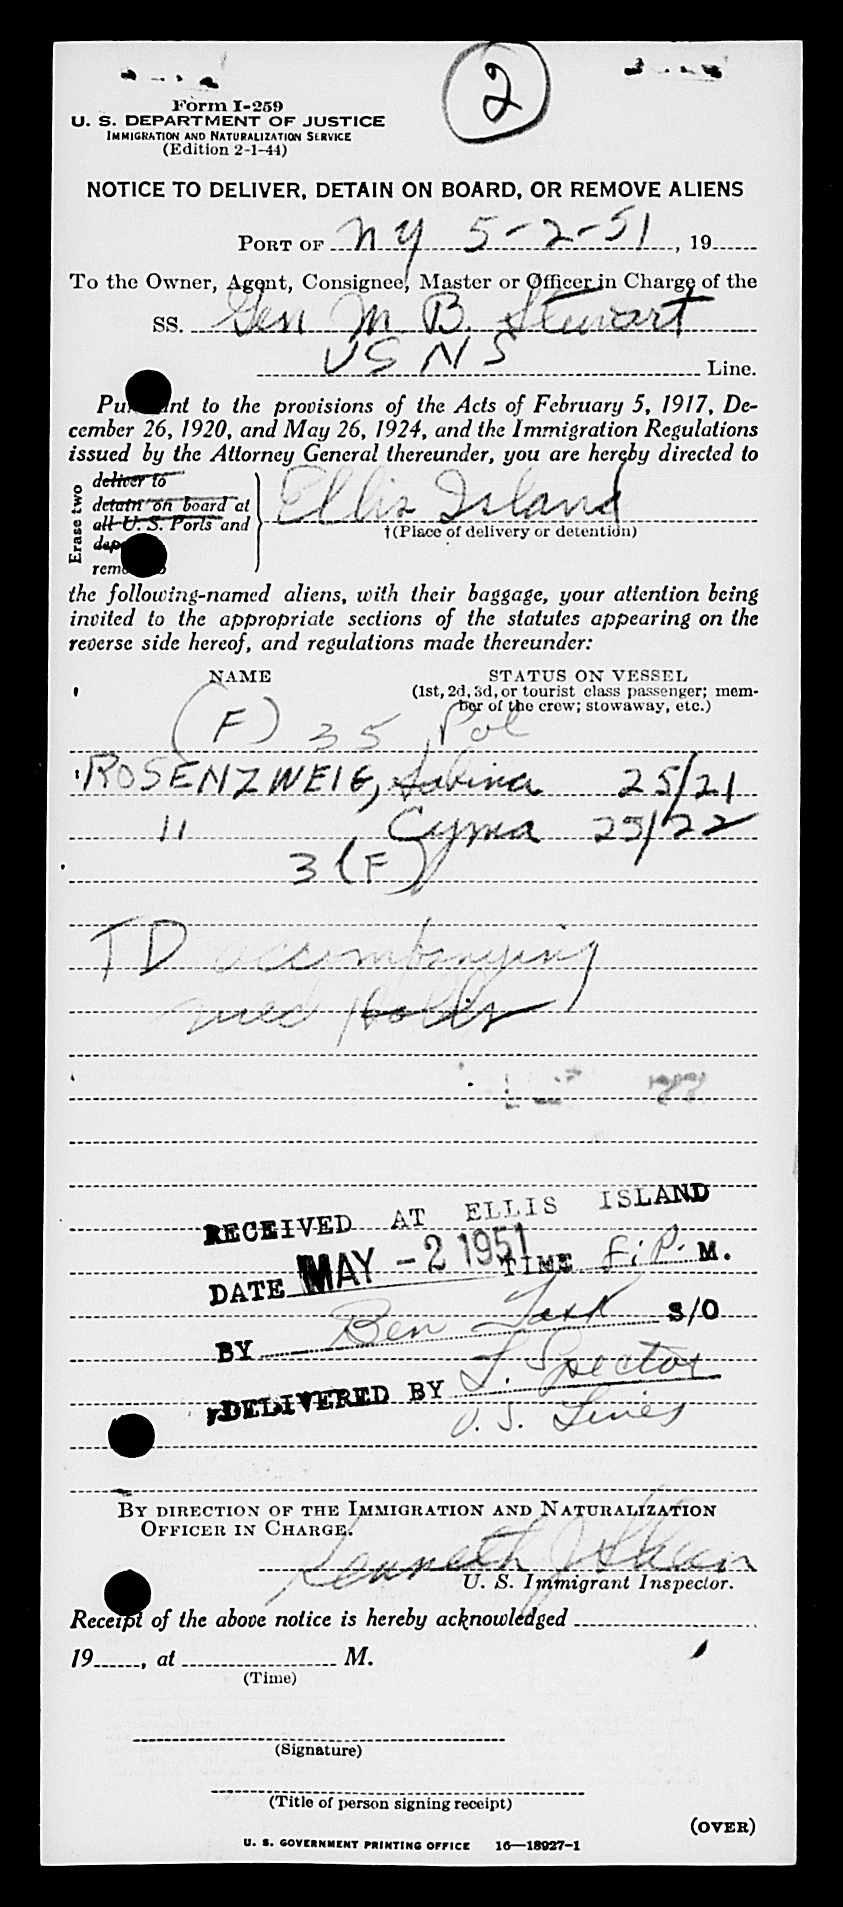 2
Form I-259
U. S. DEPARTMENT OF JUSTICE
IMMIGRATION AND NATURALIZATION SERVICE
(Edition 2-1-44)
NOTICE TO DELIVER, DETAIN ON BOARD, OR REMOVE ALIENS
PORT OF NY 5-2-51, 19
To the Owner, Agent, Consignee, Master or Officer in Charge of the
SS. Gen M. B. Stewart
USNS Line.
Pu nt to the provisions of the Acts of February 5, 1917, De-
cember 26, 1920, and May 26, 1924, and the Immigration Regulations
issued by the Attorney General thereunder, you are hereby directed to
Erase two
deliver to
detain on board at
all U. S. Ports and
dep
rem
Ellis Island
†(Place of delivery or detention)
the following-named aliens, with their baggage, your attention being
invited to the appropriate sections of the statutes appearing on the
reverse side hereof, and regulations made thereunder:
NAME STATUS ON VESSEL
(1st, 2d, 3d, or tourist class passenger; mem-
ber of the crew; stowaway, etc.)
(F) 35 Pol
ROSENZWEIG, Sabina 25/21
" Cyma 25/22
3 (F)
TD accompanying
med
RECEIVED AT ELLIS ISLAND
DATE MAY -2 1951 TIME P. M.
BY Ben S/O
DELIVERED BY J. Spector
U. S. Lines
BY DIRECTION OF THE IMMIGRATION AND NATURALIZATION
OFFICER IN CHARGE.
Kenneth J
U. S. Immigrant Inspector.
Receipt of the above notice is hereby acknowledged
19, at M.
(Time)
(Signature)
(Title of person signing receipt)
(OVER)
U. S. GOVERNMENT PRINTING OFFICE 16—18927-1